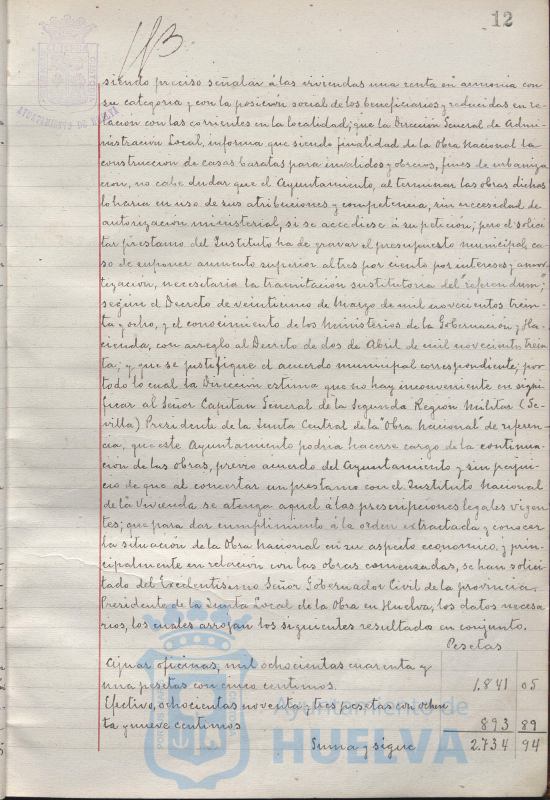 12
siendo preciso señalar á las viviendas una renta en armonia con
su categoria y con la posición social de los beneficiarios y reducidas en re-
lación con las corrientes en la localidad; que la Dirección General de Admi-
nistracion Local, informa que siendo finalidad de la Obra Nacional la
construccion de casas baratas para invalidos y obreros, fines de urbaniza
cion, no cabe dudar que el Ayuntamiento, al terminar las obras dichas
lo haria en uso de sus atribuciones y competencia, sin necesidad de
autorización ministerial, si se accediese á su petición; pero el solici
tar prestamo del Instituto ha de gravar el presupuesto municipal, ca-
so de suponer aumento superior al tres por ciento por intereses y amor
tización, necesitaria la tramitación sustitutoria del "referendum",
según el Decreto de veinticinco de Marzo de mil novecientos trein-
ta y ocho, y el conocimiento de los Ministerios de la Gobernación y Ha-
cienda, con arreglo al Decreto de dos de Abril de mil novecientos trein
ta; y que se justifique el acuerdo municipal correspondiente; por
todo lo cual la Dirección estima que no hay inconveniente en signi-
ficar al Señor Capitan General de la Segunda Región Militar (Se-
villa) Presidente de la Junta Central de la "Obra Nacional" de referen-
cia, que este Ayuntamiento podria hacerse cargo de la continua-
cion de las obras, previo acuerdo del Ayuntamiento y sin perjui-
cio de que al concertar un prestamo con el Instituto Nacional
de la Vivienda se atenga aquel á las prescripciones legales vigen-
tes; que para dar cumplimiento á la orden extractada y conocer
la situación de la Obra Nacional en su aspecto economico y prin-
cipalmente en relación con las obras comenzadas, se han solici-
tado del Excelentisimo Señor Gobernador Civil de la provincia,
Presidente de la Junta Local de la Obra en Huelva, los datos necesa
rios, los cuales arrojan los siguientes resultados en conjunto.
Pesetas
Ajuar oficinas, mil ochocientas cuarenta y
una pesetas con cinco centimos. 1.841 05
Efectivo, ochocientas noventa y tres pesetas con ochen
ta y nueve centimos 893 89
Suma y sigue 2.734 94
AYUNTAMIENTO DE HUELVA
Ayuntamiento de
HUELVA